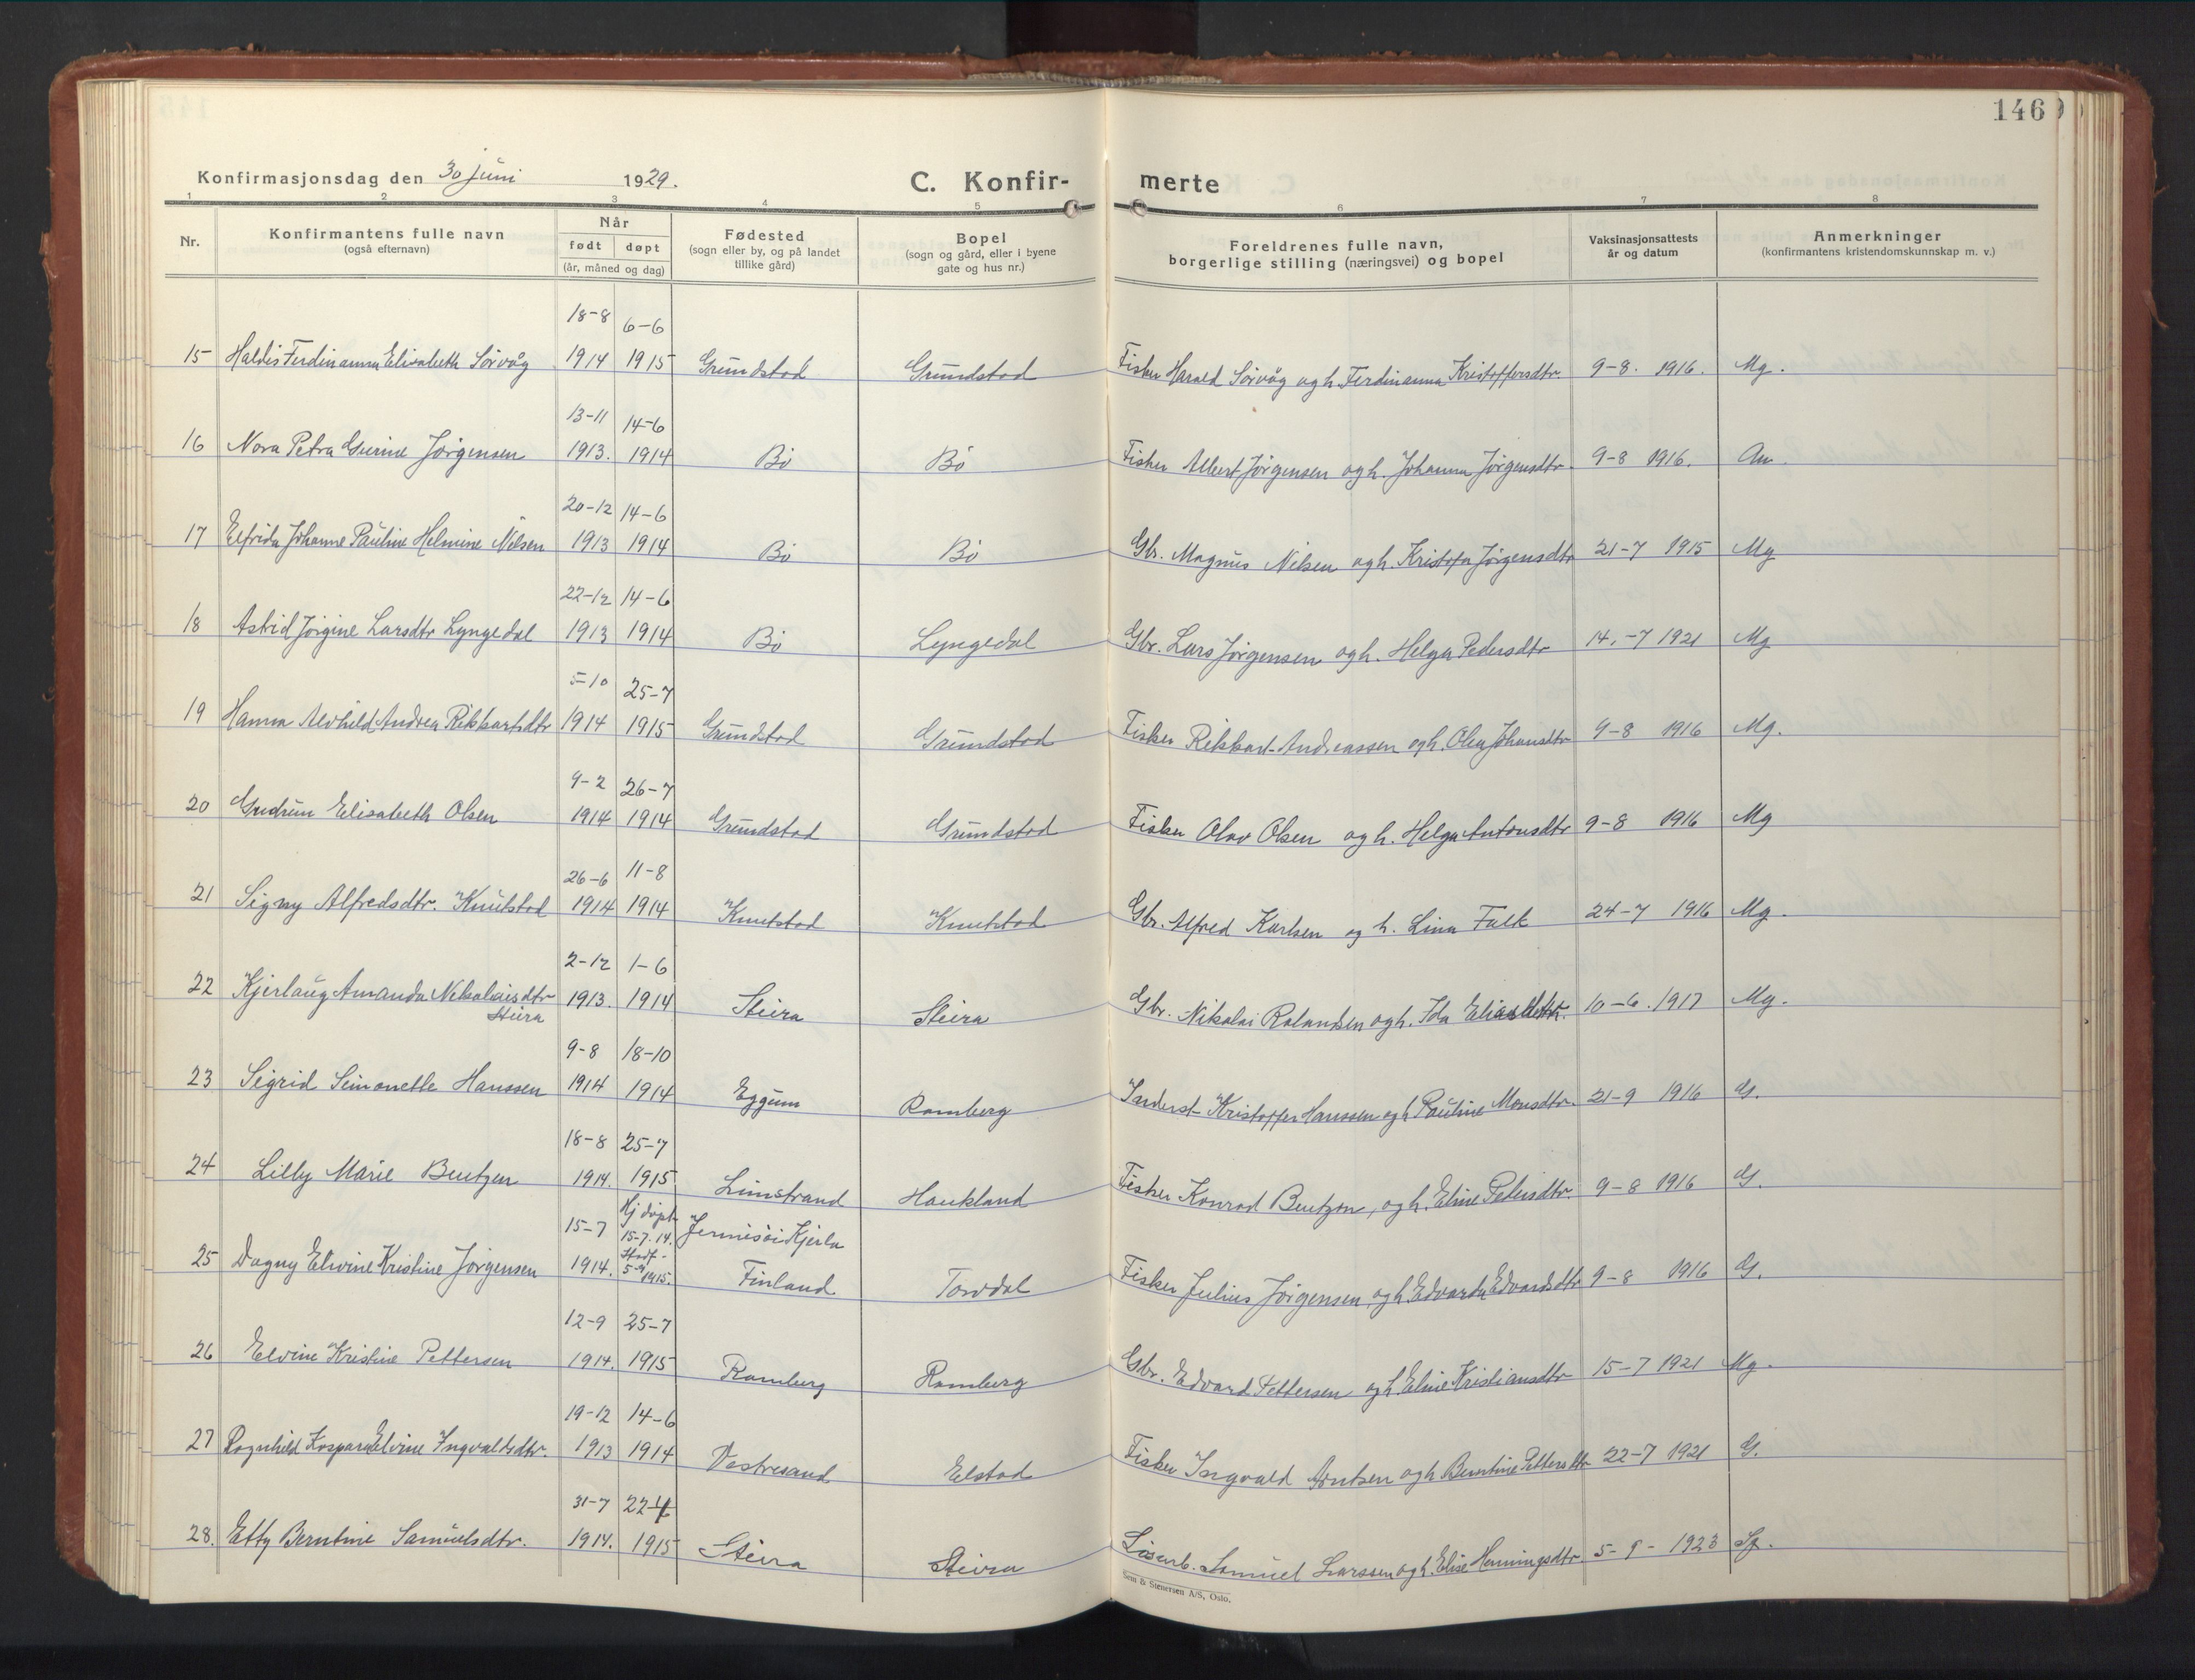 146
Konfirmasjonsdag den 30 juni 1929.
C. Konfir- merte
1 2 3 4 5 6 7 8
Nr. Konfirmantens fulle navn (også efternavn) Når født døpt (år, måned og dag) Fødested (sogn eller by, og på landet tillike gård) Bopel (sogn og gård, eller i byene gate og hus nr.) Foreldrenes fulle navn, borgerlige stilling (næringsvei) og bopel Vaksinasjonsattests år og datum Anmerkninger (konfirmantens kristendomskunnskap m. v.)
18-8 6-6
15 Haldis Ferdinanna Elisabeth Sørvåg 1914 1915 Grundstad Grundstad Fisker Harald Sørvåg og h. Ferdinanna Kristoffersdtr. 9-8. 1916. Mg.
13-11 14-6
16 Nora Petra Gurine Jørgensen 1913. 1914 Bø Bø Fisker Albert Jørgensen og h. Johanna Jørgensdtr. 9-8 1916. Am.
20-12 14-6
17 Elfrida Johanne Pauline Helmine Nilsen 1913 1914 Bø Bø Gbr. Magnus Nilsen og h. Kristofa Jørgensdtr 21-7 1915 Mg
22-12 14-6
18 Astrid Jørgine Larsdtr Lyngedal 1913 1914 Bø Lyngedal Gbr. Lars Jørgensen og h. Helga Pedersdtr 14.-7 1921 Mg
5-10 25-7
19 Hanna Alvhild Andrea Rikkartsdtr 1914 1915 Grundstad Grundstad Fisker Rikkart Andreassen og h. Olea Johansdtr 9-8 1916 Mg.
9-2 26-7
20 Gudrun Elisabeth Olsen 1914 1914 Grundstad Grundstad Fisker Olav Olsen og h. Helga Antonsdtr 9-8 1916 Mg
26-6 11-8
21 Signy Alfredsdtr. Knutstad 1914 1914 Knutstad Knutstad Gbr. Alfred Karlsen og h. Lina Falk 24-7 1916 Mg.
2-12 1-6
22 Kjerlaug Amanda Nikolaisdtr 1913. 1914 Steira Steira Gbr. Nikolai Rolandsen og h. Ida 10-6. 1917 Mg.
Steira
9-8 18-10
23 Sigrid Simonette Hanssen 1914 1914 Eggum Ramberg Kristoffer Hanssen og h. Pauline Monsdtr. 21-9 1916 G.
18-8 25-7
24 Lilly Marie Bentzen 1914. 1915 Limstrand Haukland Fisker Konrad Bentzen, og h. Eline Petersdtr. 9-8 1916 G.
15-7 Hj døpt 15-7.14. Kjerla
25 Dagny Elvine Kristine Jørgensen 1914. Stadf. 5-9 1915. Finland Torvdal Fisker Julius Jørgensen og h. Edvarda Edvardsdtr 9-8 1916 G.
12-9 25-7
26 Elvine Kristine Pettersen 1914. 1915 Ramberg Ramberg Gbr. Edvard Pettersen og h. Eline Kristiansdtr 15-7 1921 Mg.
19-12 14-6
27 Ragnhild Kaspara Elvine Ingvaldsdtr. 1913 1914 Vestresand Elstad Fisker Ingvald Arntsen og h. Berntine Pettersdtr 22-7 1921 G.
31-7 22-4
28. Etty Berntine Samuelsdtr. 1914. 1915 Steira Steira Løsarb. Samuel Larssen og h. Elise Henningsdtr. 5-9-1923
Sem & Stenersen A/S, Oslo.